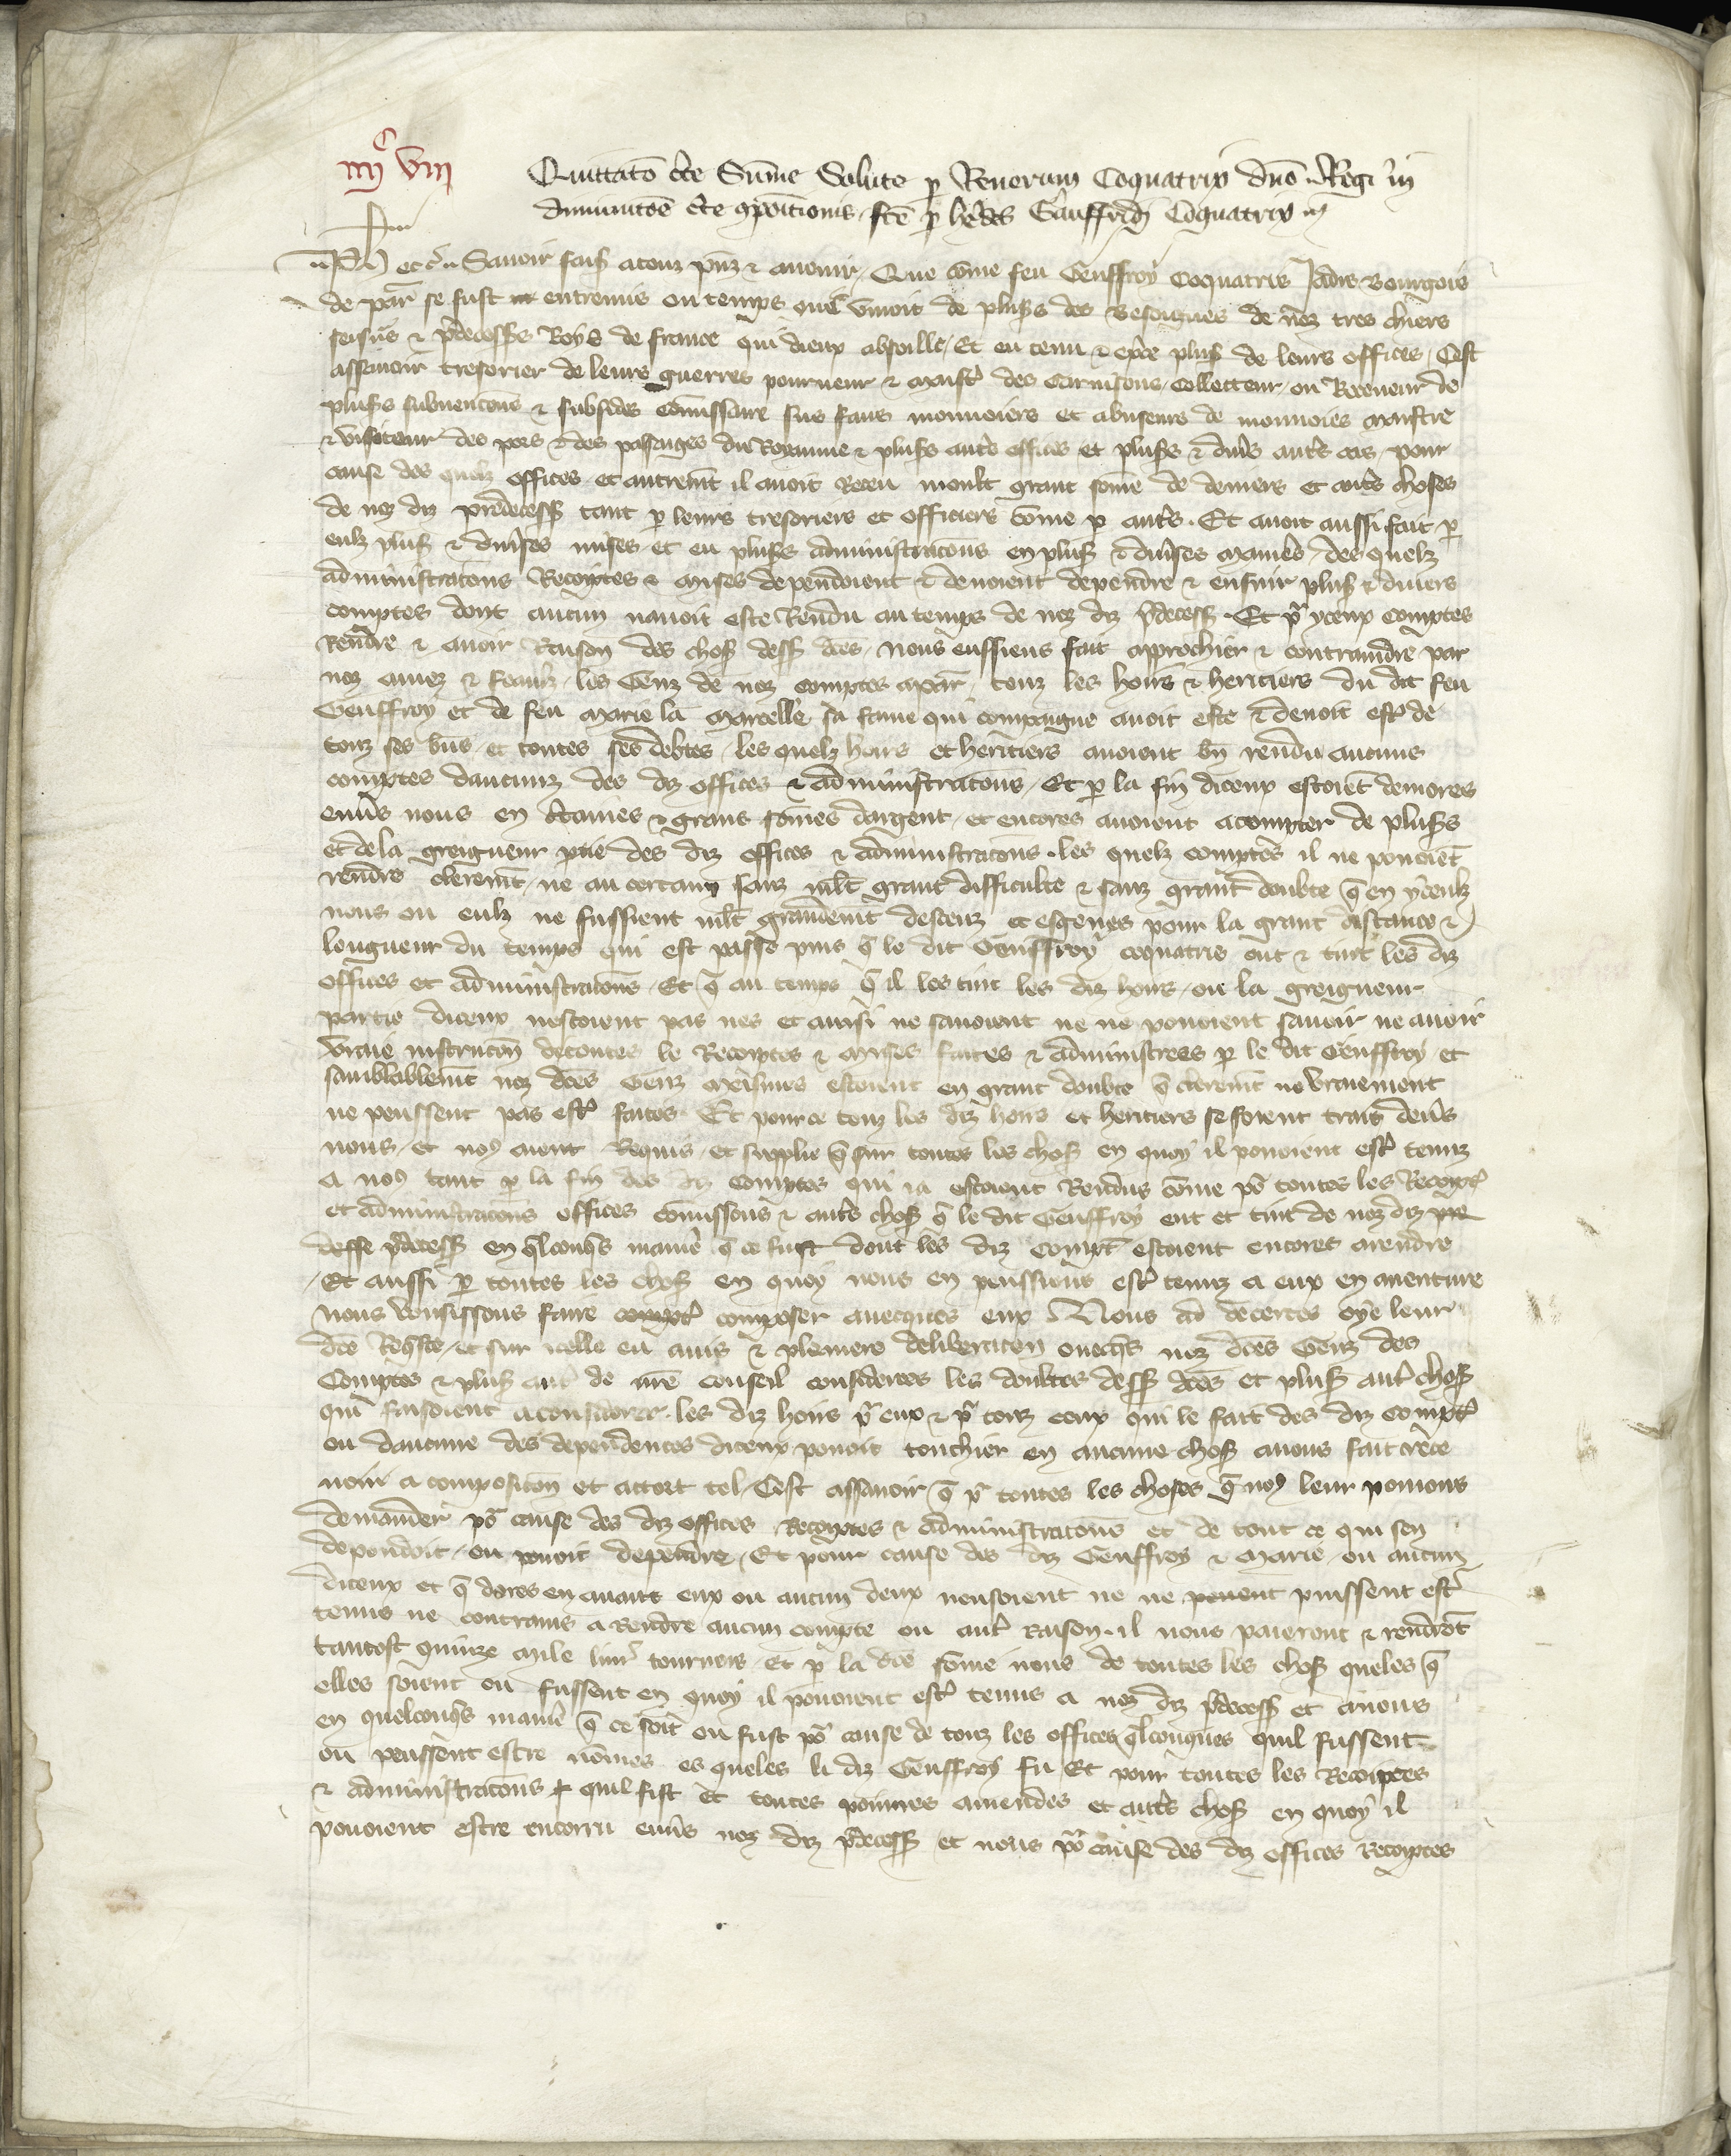 iiijc viij
Quittatō cte Sūme Solute p Renerum Coquatrix dn̄o Regi in
diminutōe cte ꝯpōitionis fcē p hedes Gauffridi Coquatrix
Ph etc̄ Savoir faiſ a touz pn̄z ⁊ avenir Que cōme feu Geuffroy Coquatris Jadis Bourgois
de Par se fust entremis ou temps que vivoit de pluſſ des Besoignes de noz tres chiers
seign̄s ⁊ p̄decess Roys de France qui dieux absoille Et eu tenu ⁊ ex̄ce pluſ de leurs offices Cest
assavoir tresorier de leurs guerres pourveur ⁊ maistr̄ des Garnisons Collecteur ou Receveur de
pluſſ subvencōns ⁊ subsides Cōmissaire sus faus monnoiers et abuseurs de monnoies maistre
⁊ visiteur des pors ⁊ des passaiges du Royaume ⁊ pluſſ autr̄s offices et pluſſ ⁊ div̄s autr̄s cas pour
cause des quelz offices et autremt̄ il avoit Receu moult grant sōme de deniers et autr̄s choses
de noz diz predecess tant p leurs tresoriers et officiers cōme p autr̄s Et avoit aussi fait p
eulz pluſ ⁊ div̄ses mises et eu pluſſ administracōns en pluſ ⁊ div̄ses manier̄s des quelz
administracōns Receptes ⁊ mises dependoient ⁊ devoient dependre ⁊ ensuir pluſ ⁊ divers
comptes dont aucun navoit este Rendu au temps de noz diz p̄decess Et pr̄ yceux comptes
Rendre ⁊ avoir Raison des choſ dess dc̄es Nous eussiens fait approchier ⁊ contraindre par
noz amez ⁊ feaulz les Genz de noz comptes a Par touz les hoirs ⁊ heritiers du dit feu
Geuffroy et de feu Marie la Marcelle sa fame qui compaigne avoit este ⁊ devoit estr̄ de
touz ses bn̄s et toutes ses debtes les quelz hoirs et heritiers avoient bn̄ rendu aucuns
comptes daucunz des diz offices ⁊ administracōns Et p la fin diceux estoiēt demores
env̄s nous en ctaines ⁊ grans sōmes dargent et encores avoient a compter de pluſſ
et de la greigneur ptie des diz offices ⁊ administracōns les quelz comptes il ne povoiēt
rendre cleremt̄ ne au certain sanz mlt̄ grant difficulte ⁊ sanz grant doubte q̄ en yceulz
nous ou eulz ne fussient mlt̄ grandemt̄ deceuz et esgenes pour la grant distance ⁊
longueur du temps qui est passe puis q̄ le dit Geuffroy Coquatris out ⁊ tint les diz
offices et administracōns Et q̄ au temps q̄ il les tint les diz hoirs ou la greigneur
partie diceux nestoient pas nes et ainsi ne savoient ne ne povoient savoir ne avoir
vraie instructōn de toutes le Receptes ⁊ Mises faites ⁊ administrees p le dit Geuffroy et
samblablemt̄ noz dc̄es Genz meismes estoient en grant doubte q̄ cleremt̄ ne vraiement
ne peussent pas estr̄ faites Et pour ce touz les diz hoirs et heritiers se soient traiz dev̄s
nous et noꝰ aient Requis et supplie q̄ sur toutes les choſ en quoy il povoient estr̄ tenuz
a noꝰ tant p la fin des diz comptes qui ia estoient Rendus cōme pō toutes les Recept̄
et administracōns offices cōmissons ⁊ autr̄s choſ q̄ le dit Geuffroy eut et tint de noz diz
p̄decess en q̄lconqs manie q̄ ce fust dont les diz compt̄ estoient encores a rendre
Et aussi p toutes les choſ en quoy nous en peussiens estr̄ tenuz a eux en aventure
nous vousissons faire composer avecques eux Nous ad decertes oye leur
dc̄e Requste et sur icelle eu avis ⁊ pleniere deliberacōn ovecqs noz dc̄es Genz des
Comptes ⁊ pluſ autr̄ de nr̄e conseil considerees les doubtes dess dc̄es et pluſ autr̄ choſ
qui faisoient a considerer les diz hoirs pr̄ eux ⁊ pr̄ touz ceux qui le fait des diz compt̄
ou daucune des dependences diceux povoit touchier en aucune choſ avons fait
venir a composicōn et accort tel Cest assavoir q̄ pr̄ toutes les choses q̄ noꝰ leur povions
demander pō cause des diz offices Receptes ⁊ administracōns et de tout ce qui sen
dependoit ou povoit dependre Et pour cause des diz Geuffroy ⁊ Marie ou aucun
diceux et q̄ dores en avant eux ou aucun deux nensoient ne ne puissent estr̄
tenus ne contrains a Rendre aucun compte ou autr̄ Raison il nous paieront ⁊ rendrōt
tantost quinze mile livr̄ tournois Et p la dc̄e sōme nous de toutes les choſ queles q̄
elles soient ou fussent en quoy il povoient estr̄ tenus a noz diz p̄decess et a nous
en quelconqs manie q̄ ce soit ou fust pō cause de touz les offices q̄lconques quil fussent
ou peussent estre nōmes es queles li diz Geuffroy fu Et pour toutes les Receptes
⁊ administracōns quil fist et toutes poinnes amendes et autr̄s choſ en quoy il
povoient estre encorru env̄s noz diz p̄decess et nous pō cause des diz offices Receptes